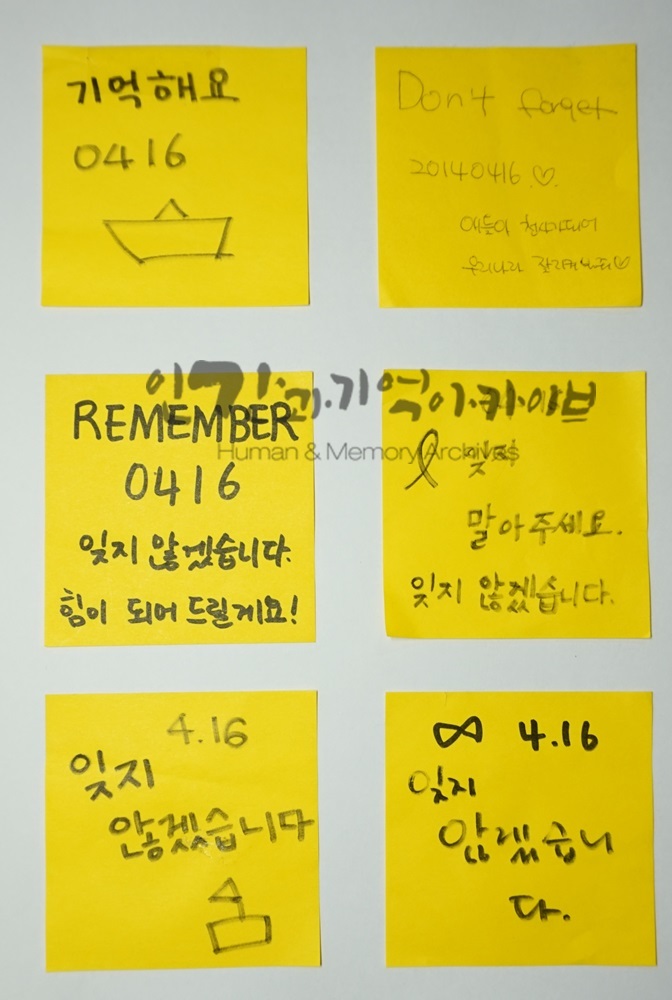 기억해요
0416
Don't forget
20140416 ♡.
애들아 천사가되어
우리나라 잘지켜봐줘♡
인간과기억아카이브
Human & Memory Archives
REMEMBER
0416
잊지 않겠습니다.
힘이 되어 드릴게요!
잊지
말아주세요.
잊지 않겠습니다.
4.16
잊지
않겠습니다
∞ 4.16
잊지
않겠습니
다.